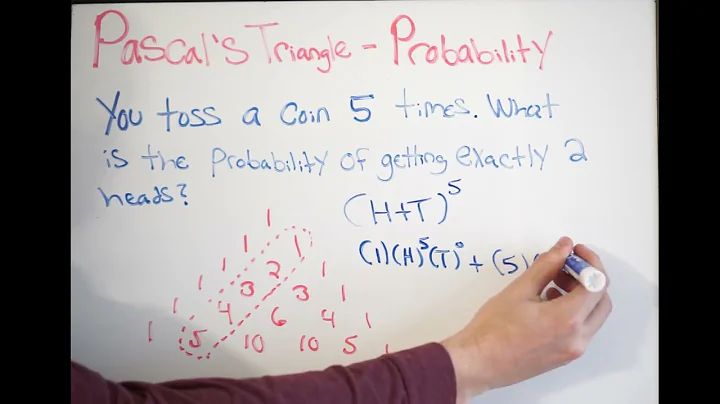 Pascal's Triangle - Probability
You toss a coin 5 times. What
is the probability of getting exactly 2
heads?
(H+T)⁵
(1)(H)⁵(T)⁰ + (5)(
1
1 1
1 2 1
1 3 3 1
1 4 6 4 1
1 5 10 10 5 1